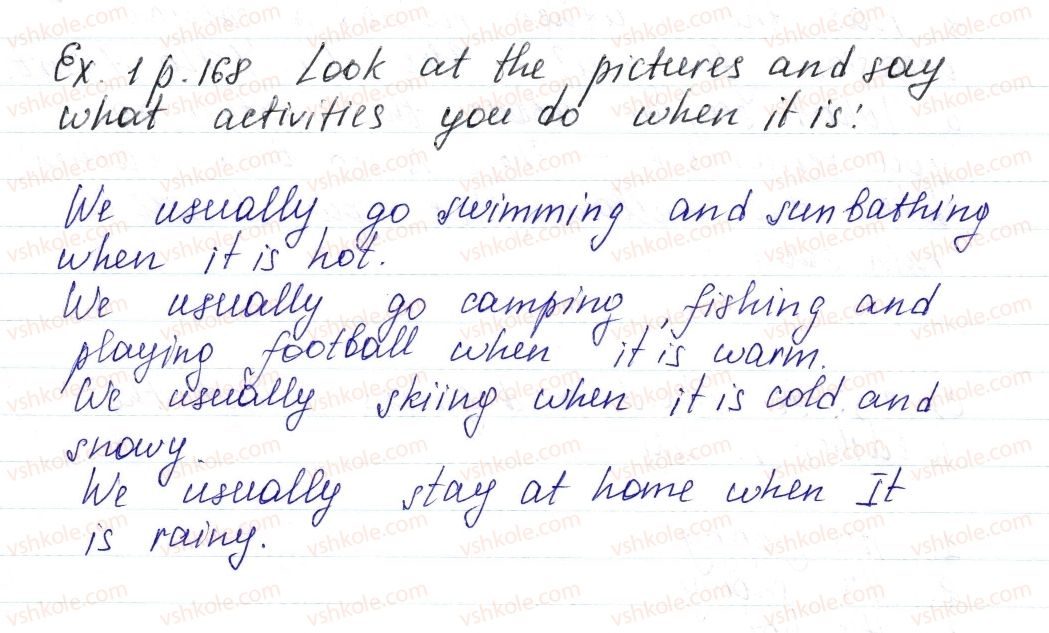 Ex. 1 p. 168 Look at the pictures and say
what activities you do when it is:
We usually go swimming and sunbathing
when it is hot.
We usually go camping, fishing and
playing football when it is warm.
We usually skiing when it is cold and
snowy.
We usually stay at home when It
is rainy.